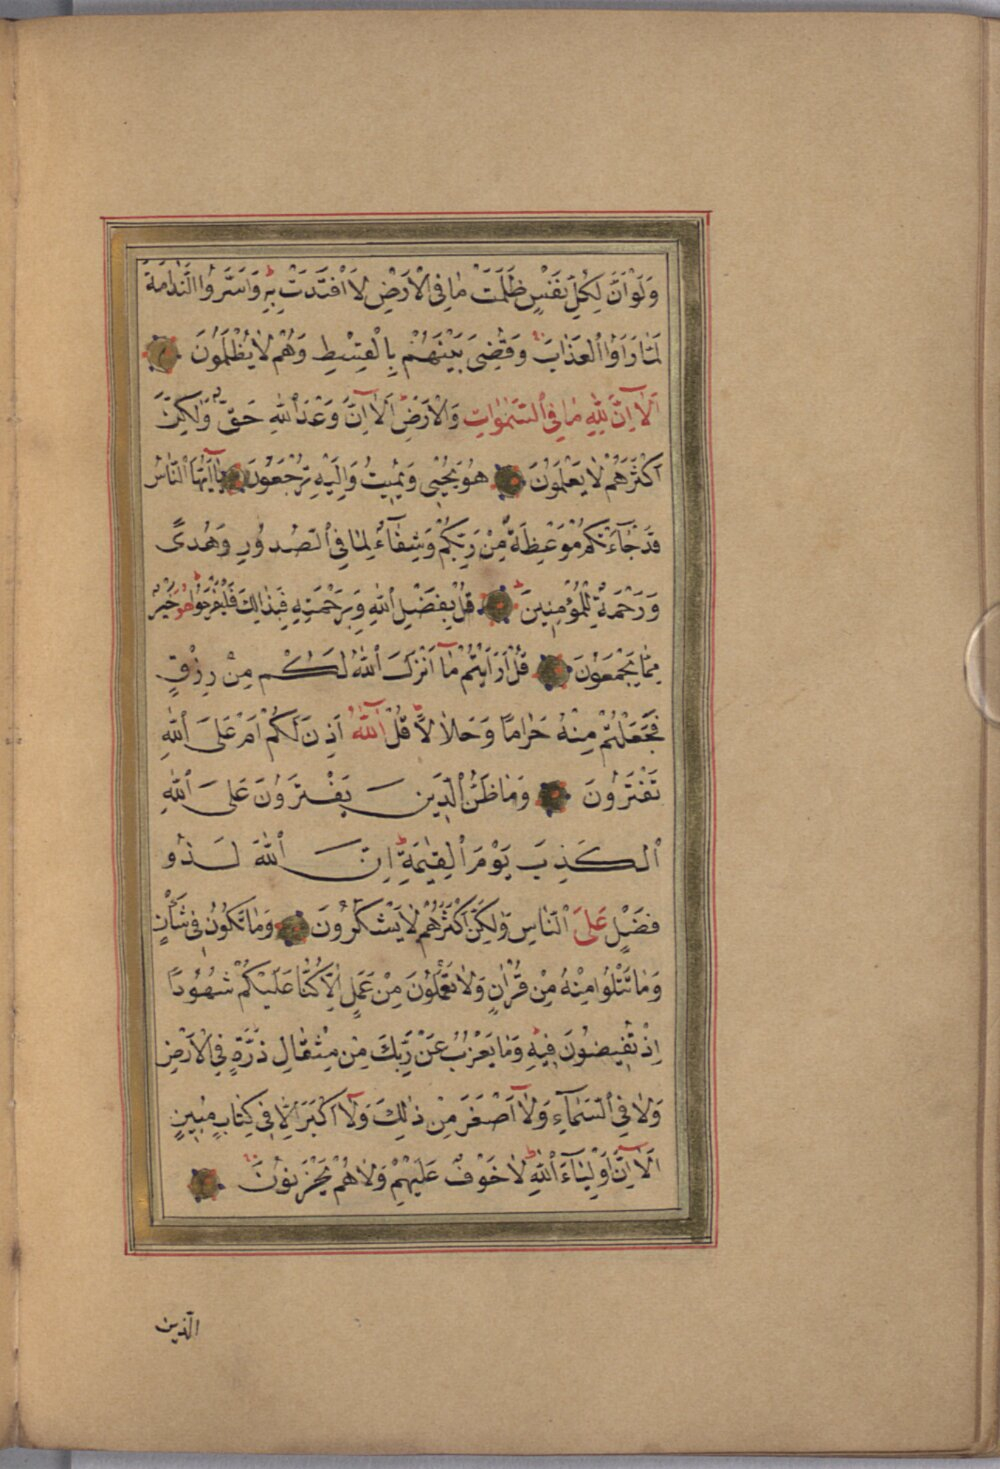 وَلَوْ اَنَّ لِكُلِّ نَفْسٍ ظَلَمَتْ مَا فِي الْاَرْضِ لَافْتَدَتْ بِهٖ وَاَسَرُّوا النَّدَامَةَ
لَمَّا رَاَوُا الْعَذَابَ وَقُضِيَ بَيْنَهُمْ بِالْقِسْطِ وَهُمْ لَا يُظْلَمُونَ
اَلَٓا اِنَّ لِلّٰهِ مَا فِي السَّمٰوَاتِ وَالْاَرْضِ اَلَٓا اِنَّ وَعْدَ اللّٰهِ حَقٌّ وَلٰكِنَّ
اَكْثَرَهُمْ لَا يَعْلَمُونَ هُوَ يُحْيٖي وَيُمٖيتُ وَاِلَيْهِ تُرْجَعُونَ يَٓا اَيُّهَا النَّاسُ
قَدْ جَٓاءَتْكُمْ مَوْعِظَةٌ مِنْ رَبِّكُمْ وَشِفَٓاءٌ لِمَا فِي الصُّدُورِ وَهُدًى
وَرَحْمَةٌ لِلْمُؤْمِنٖينَ قُلْ بِفَضْلِ اللّٰهِ وَبِرَحْمَتِهٖ فَبِذٰلِكَ فَلْيَفْرَحُوا هُوَ خَيْرٌ
مِمَّا يَجْمَعُونَ قُلْ اَرَاَيْتُمْ مَٓا اَنْزَلَ اللّٰهُ لَكُمْ مِنْ رِزْقٍ
فَجَعَلْتُمْ مِنْهُ حَرَامًا وَحَلَالًا قُلْ اٰللّٰهُ اَذِنَ لَكُمْ اَمْ عَلَى اللّٰهِ
تَفْتَرُونَ وَمَا ظَنُّ الَّذٖينَ يَفْتَرُونَ عَلَى اللّٰهِ
الْكَذِبَ يَوْمَ الْقِيٰمَةِ اِنَّ اللّٰهَ لَذُو
فَضْلٍ عَلَى النَّاسِ وَلٰكِنَّ اَكْثَرَهُمْ لَا يَشْكُرُونَ وَمَا تَكُونُ فٖي شَأْنٍ
وَمَا تَتْلُوا مِنْهُ مِنْ قُرْاٰنٍ وَلَا تَعْمَلُونَ مِنْ عَمَلٍ اِلَّا كُنَّا عَلَيْكُمْ شُهُودًا
اِذْ تُفٖيضُونَ فٖيهِ وَمَا يَعْزُبُ عَنْ رَبِّكَ مِنْ مِثْقَالِ ذَرَّةٍ فِي الْاَرْضِ
وَلَا فِي السَّمَٓاءِ وَلَٓا اَصْغَرَ مِنْ ذٰلِكَ وَلَٓا اَكْبَرَ اِلَّا فٖي كِتَابٍ مُبٖينٍ
اَلَٓا اِنَّ اَوْلِيَٓاءَ اللّٰهِ لَا خَوْفٌ عَلَيْهِمْ وَلَا هُمْ يَحْزَنُونَ
الَّذٖينَ